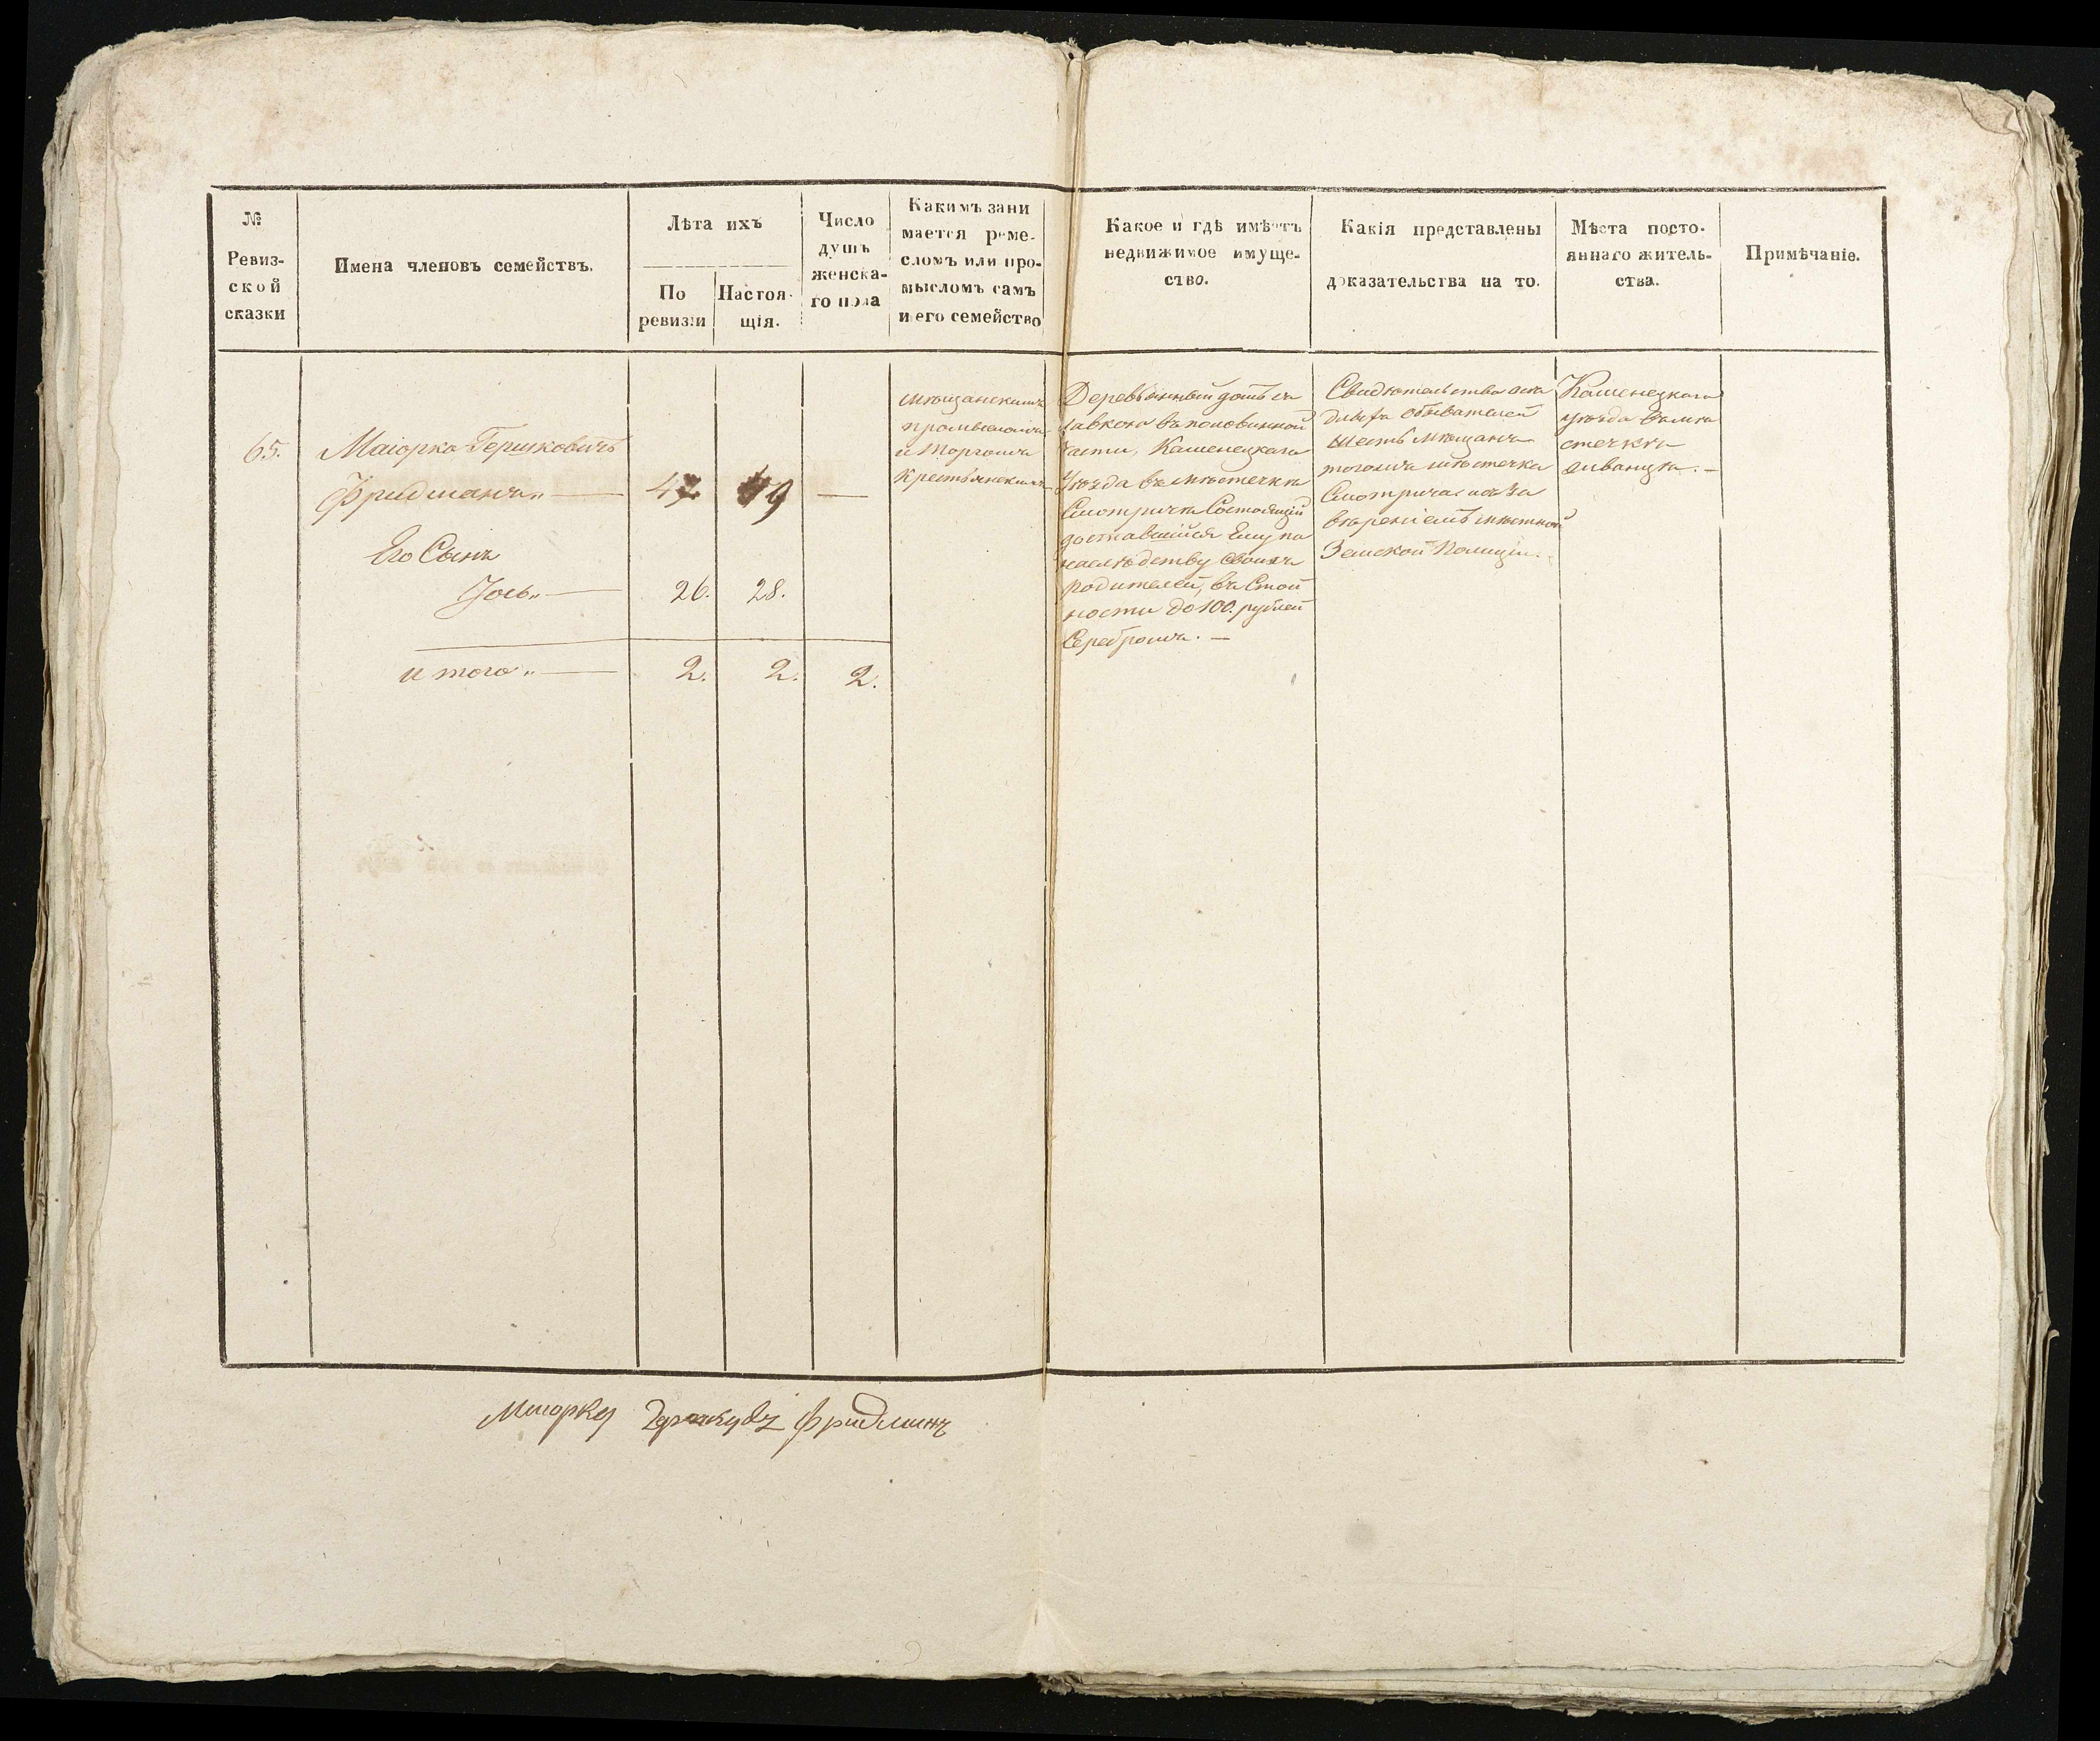 №
Ревиз-
ской
сказки
Имена членовъ семействъ.
Лѣта ихъ
По
ревизіи
Настоя-
щія.
Число
душъ
женска-
го пола
Какимъ зани
мается реме-
сломъ или про-
мысломъ самъ
и его семейство
Какое и гдѣ имѣетъ
недвижимое имуще-
ство.
Какія представлены
доказательства на то.
Мѣста посто-
яннаго житель-
ства.
Примѣчаніе.
65.
Маіорко Гершковичъ
Фридманъ „ — 47. 49 —
Его Сынъ
Іось „ — 26. 28.
итого „ — 2. 2. 2.
мѣщанскимъ
промысломъ
и торгомъ
крестьянскимъ
Деревянный домъ съ
лавкою въ половинной
части, Каменецкаго
Уѣзда въ мѣстечкѣ
Смотричѣ Состоящій
доставшійся Ему по
наслѣдству своихъ
родителей, въ Стой
ности до 100. рублей
Серебромъ. —
Свидѣтельство
обывателей
шесть мѣщанъ
тогожъ мѣстечка
Смотрича за
вѣреніемъ мѣстной
Земской Полиціи.
Каменецкаго
уѣзда въ мѣ
стечкѣ
Маіорко Фридманъ